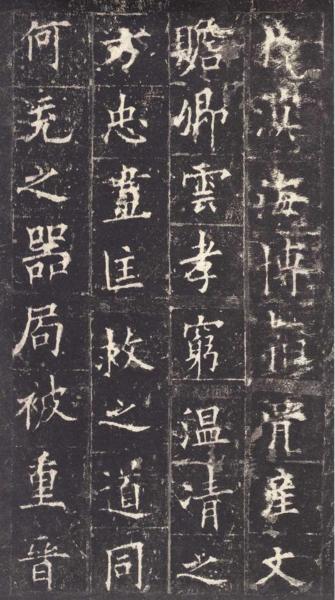 溟海博胥產文
贍卿雲孝窮溫清之
方忠盡匡救之道同
何充之器局被重晉